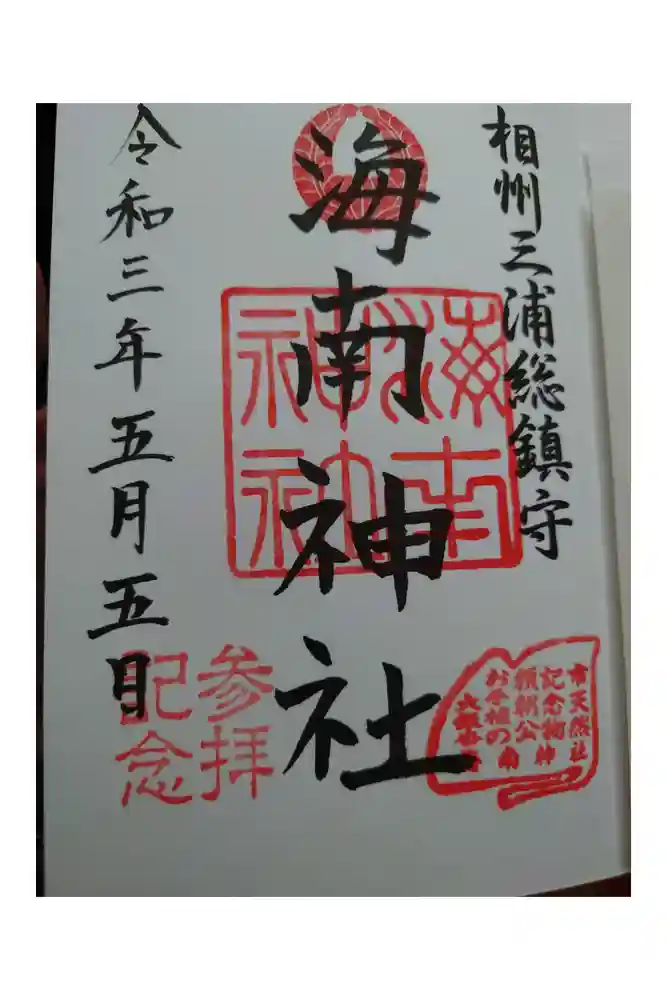 相州三浦総鎮守
海南神社
海南
神社
令和三年五月五日
参拝
記念
市天然
記念物
頼朝公
お手植の
大銀杏
南神社